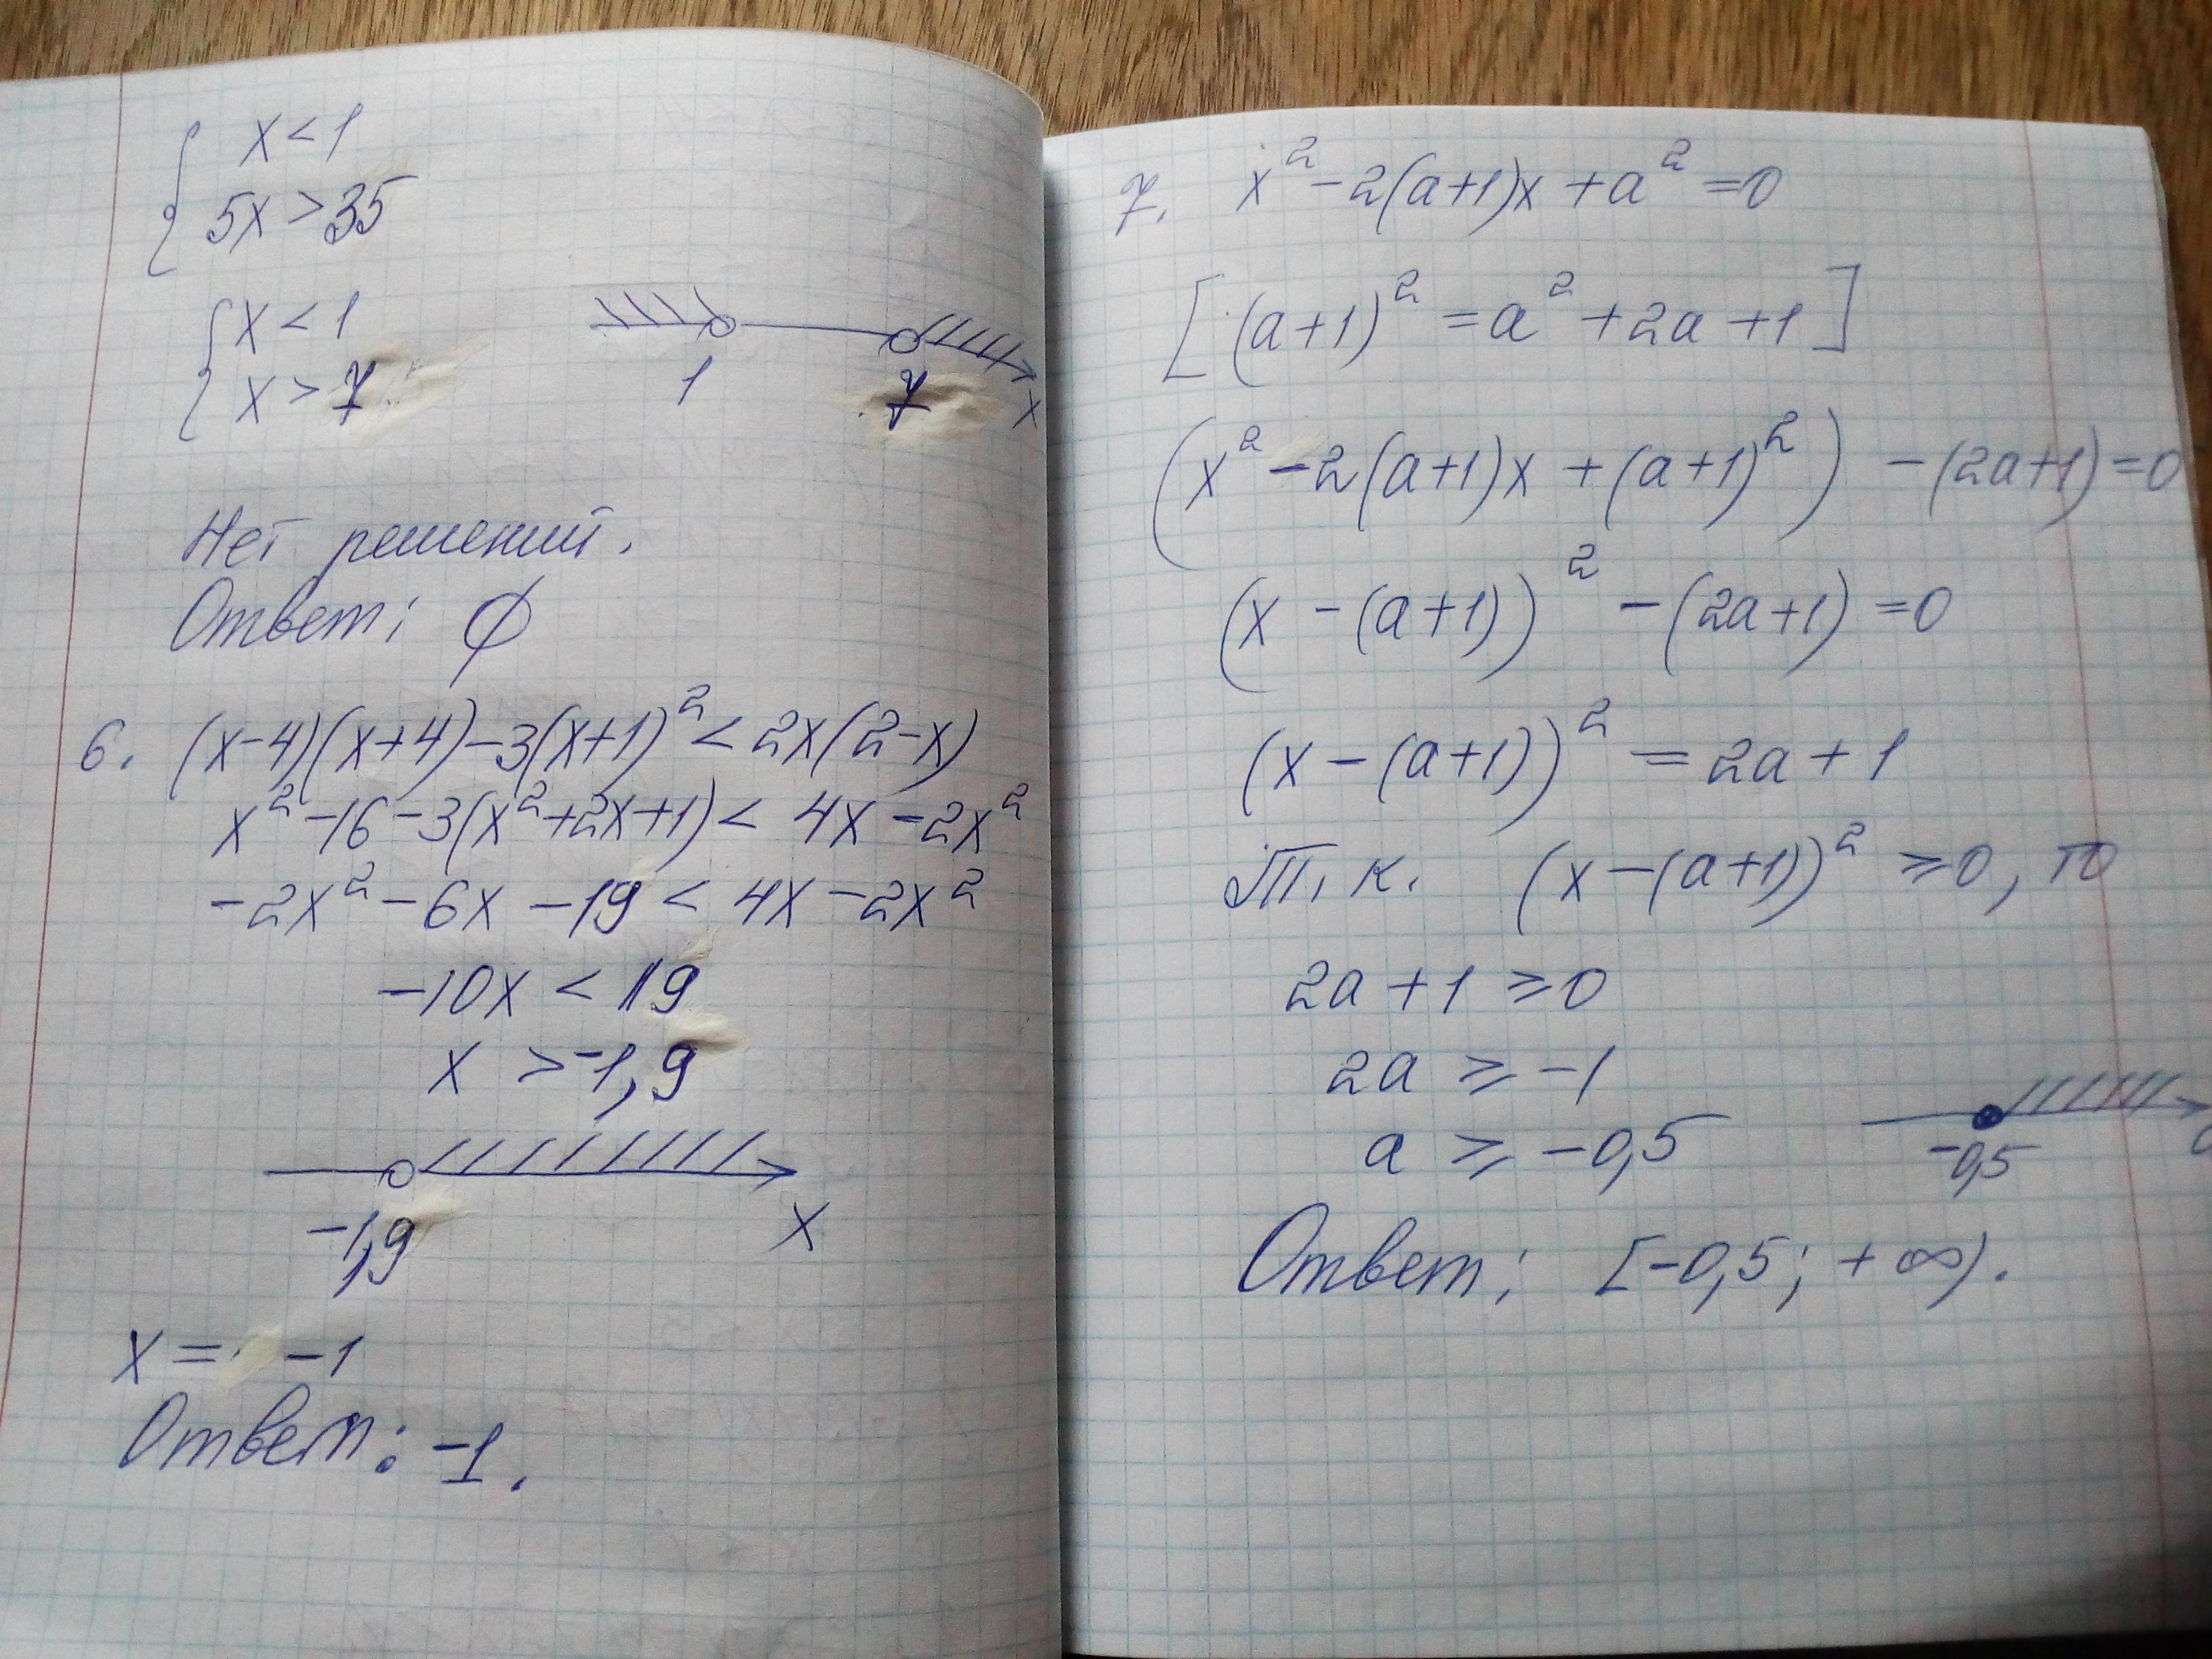 x < 1
5x > 35
x < 1
x > 7
1 7 x
Нет решений.
Ответ: ∅
6. (x-4)(x+4)-3(x+1)² < 2x(2-x)
x²-16-3(x²+2x+1) < 4x-2x²
-2x²-6x-19 < 4x-2x²
-10x < 19
x > -1,9
-1,9 x
x = -1
Ответ: -1.
7. x²-2(a+1)x+a²=0
[(a+1)²=a²+2a+1]
(x²-2(a+1)x+(a+1)²)-(2a+1)=0
(x-(a+1))²-(2a+1)=0
(x-(a+1))²=2a+1
Т.к. (x-(a+1))² ⩾ 0, то
2a+1 ⩾ 0
2a ⩾ -1
a ⩾ -0,5
-0,5
Ответ: [-0,5; +∞).